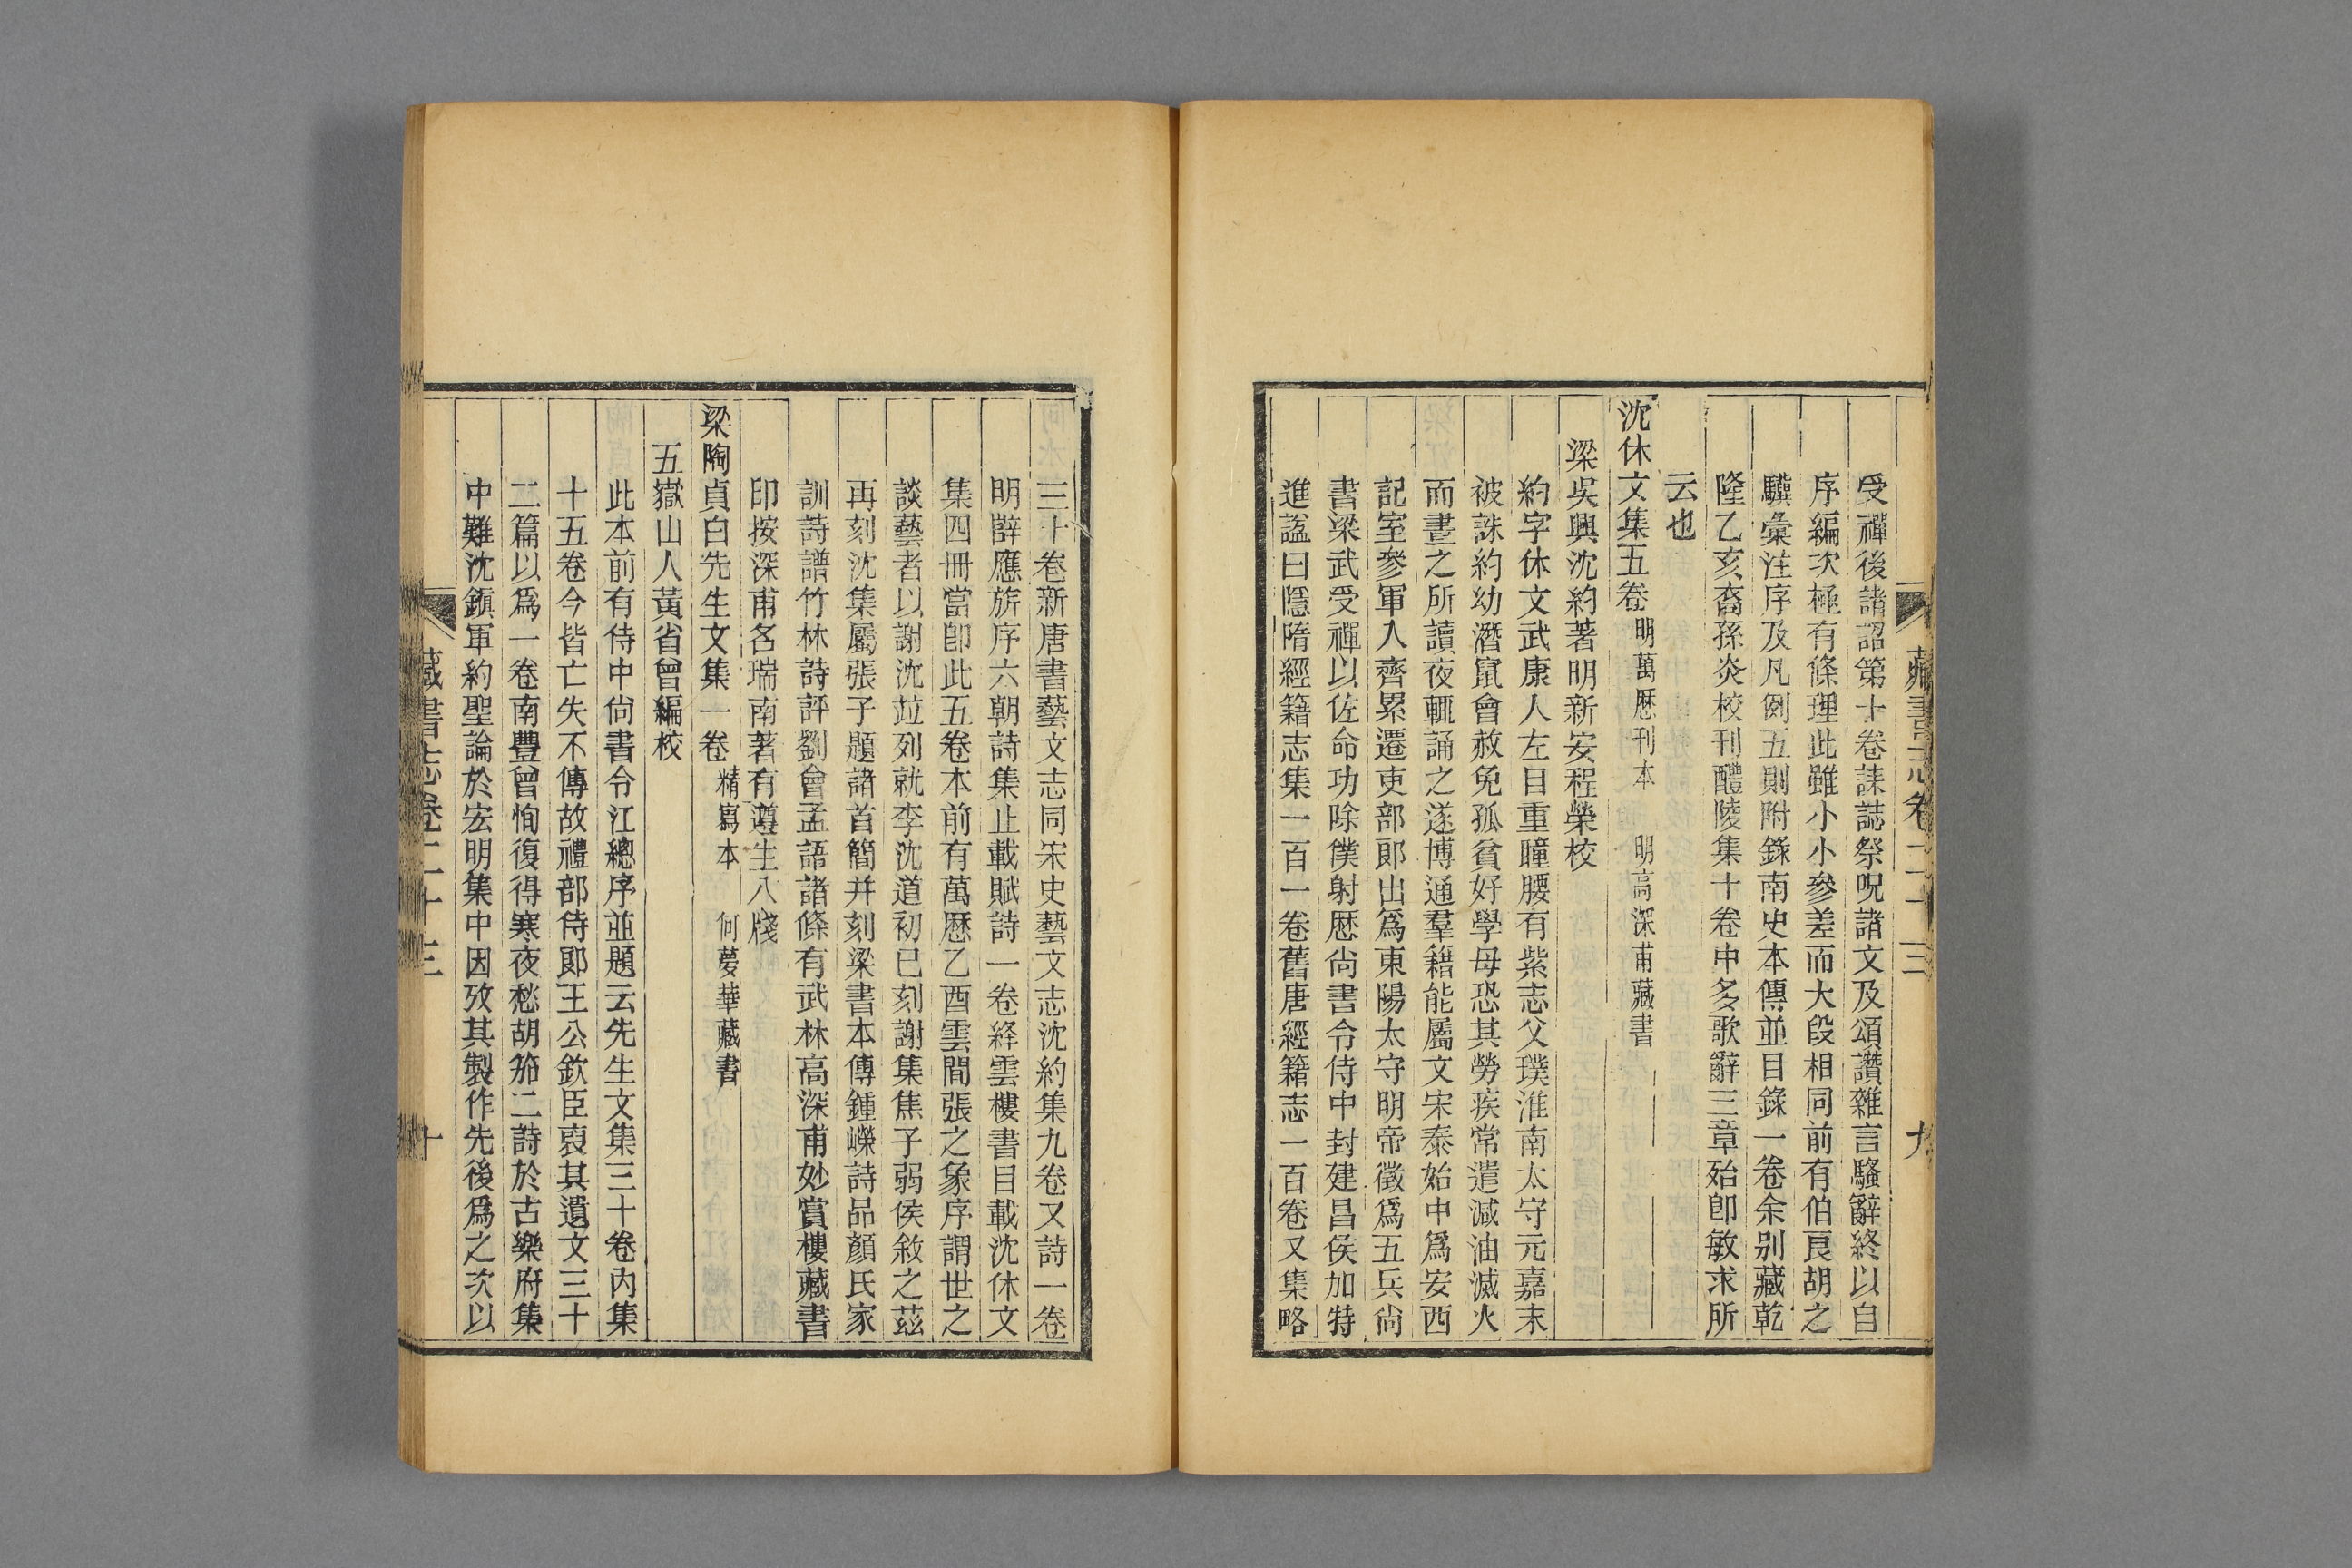 藏書志卷二十三
九
受禪後諸詔第十卷誄誌祭呪諸文及頌讚雜言騷辭終以自
序編次極有條理此雖小小參差而大段相同前有伯良胡之
驥彙注序及凡例五則附錄南史本傳並目錄一卷余别藏乾
隆乙亥裔孫炎校刊醴陵集十卷中多歌辭三章殆卽敏求所
云也
沈休文集五卷 明萬歷刊本 明高深甫藏書
梁吳興沈約著明新安程榮校
約字休文武康人左目重瞳腰有紫志父璞淮南太守元嘉末
被誅約幼潛竄會赦免孤貧好學母恐其勞疾常遣減油滅火
而晝之所讀夜輒誦之遂博通羣籍能屬文宋泰始中爲安西
記室參軍入齊累遷吏部郎出爲東陽太守明帝徵爲五兵尙
書梁武受禪以佐命功除僕射歷尙書令侍中封建昌侯加特
進諡曰隱隋經籍志集一百一卷舊唐經籍志一百卷又集略
三十卷新唐書藝文志同宋史藝文志沈約集九卷又詩一卷
明辥應旂序六朝詩集止載賦詩一卷絳雲樓書目載沈休文
集四冊當卽此五卷本前有萬歷乙酉雲間張之象序謂世之
談藝者以謝沈竝列就李沈道初已刻謝集焦子弱侯敘之茲
再刻沈集屬張子題諸首簡并刻梁書本傳鍾嶸詩品顏氏家
訓詩譜竹林詩評劉會孟語諸條有武林高深甫妙賞樓藏書
印按深甫名瑞南著有遵生八牋
梁陶貞白先生文集一卷 精寫本 何夢華藏書
五嶽山人黃省曾編校
此本前有侍中尙書令江總序並題云先生文集三十卷內集
十五卷今皆亡失不傳故禮部侍郎王公欽臣裒其遺文三十
二篇以爲一卷南豐曾恂復得寒夜愁胡笳二詩於古樂府集
中難沈鎮軍約聖論於宏明集中因攷其製作先後爲之次以
藏書志卷二十三
十